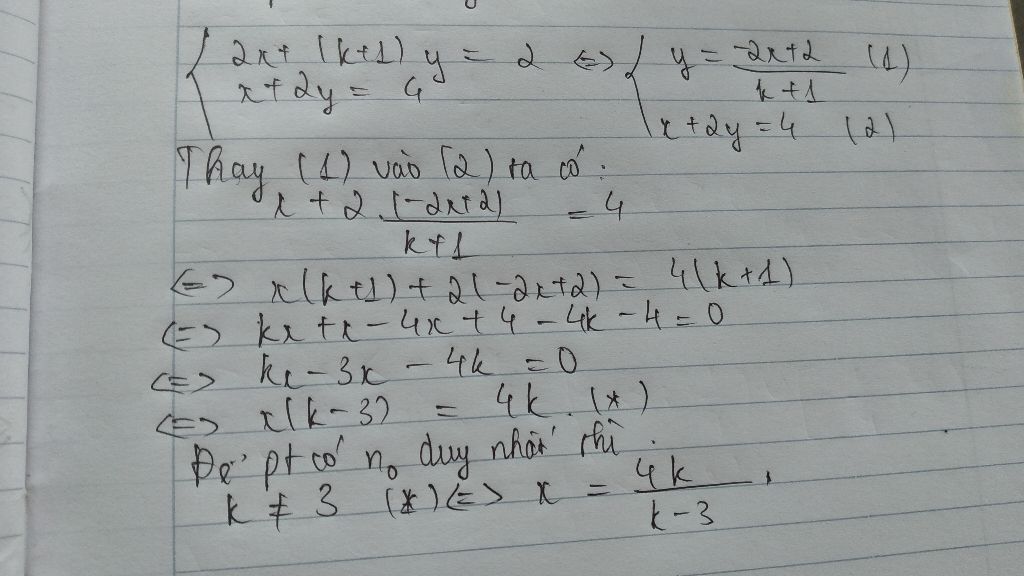 { 2x + (k+1) y = 2 <=> { y = -2x+2 / k+1 (1)
x + 2y = 4 x + 2y = 4 (2)
Thay (1) vào (2) ta có:
x + 2. (-2x+2) / k+1 = 4
<=> x(k+1) + 2(-2x+2) = 4(k+1)
<=> kx + x - 4x + 4 - 4k - 4 = 0
<=> kx - 3x - 4k = 0
<=> x(k-3) = 4k. (*)
Để pt có no duy nhất thì.
k ≠ 3 (*) <=> x = 4k / k-3